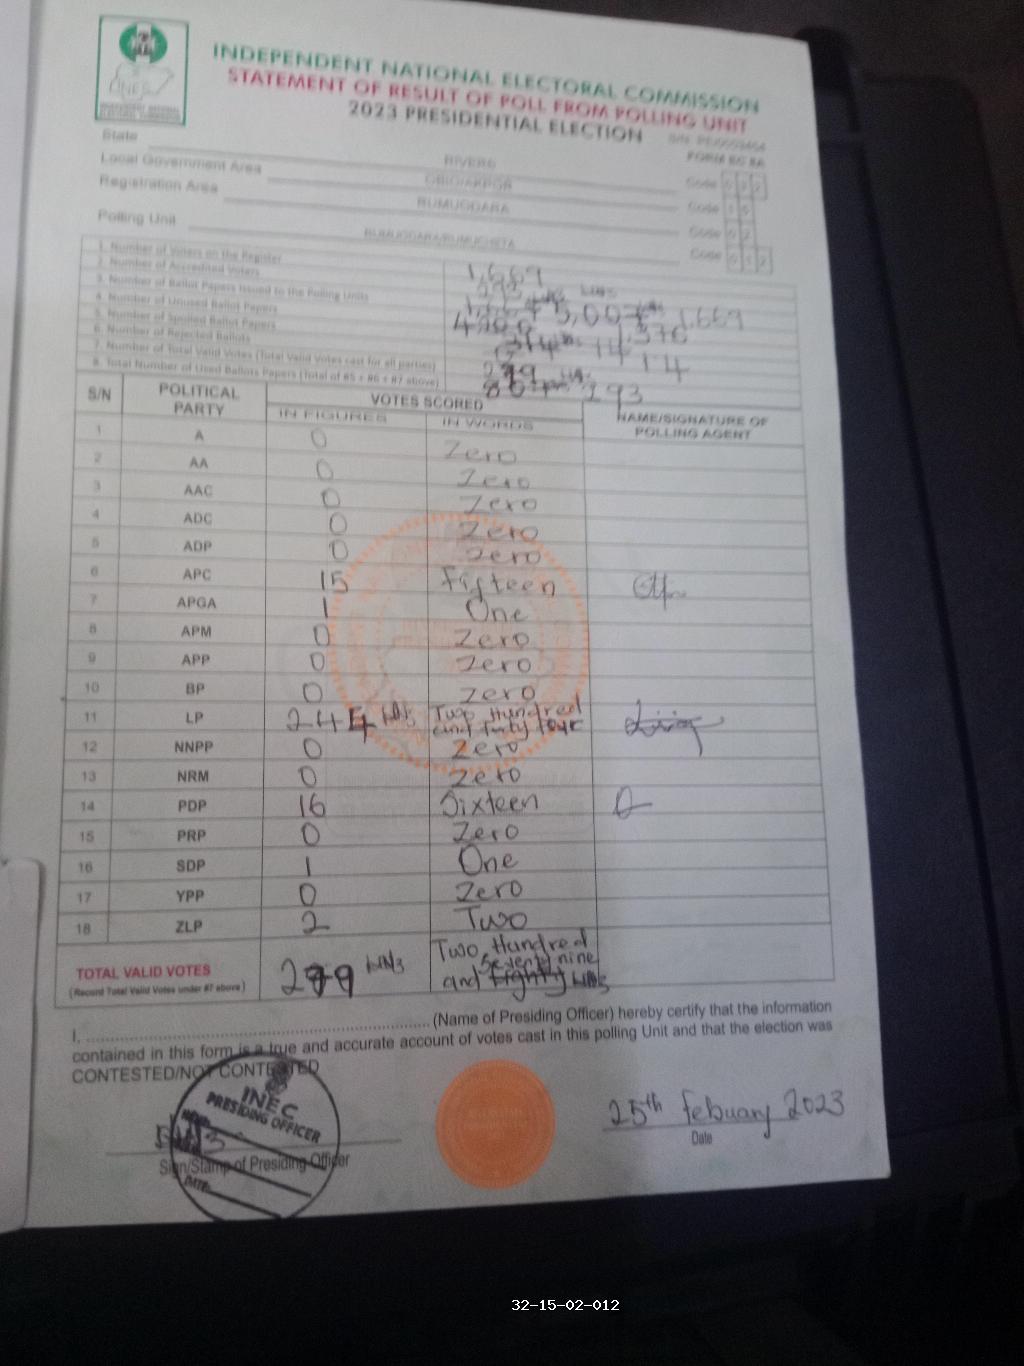 INDEPENDENT NATIONAL ELECTORAL COMMISSION
STATEMENT OF RESULT OF POLL FROM POLLING UNIT
2023 PRESIDENTIAL ELECTION
FORM EC 8A
State RIVERS Code
Local Government Area OBIO/AKPOR Code
Registration Area RUMUODARA Code
Polling Unit Code
1. Number of Voters on the Register 1,669
2. Number of Accredited Voters
3. Number of Ballot Papers Issued to the Polling Units 1,669
4. Number of Unused Ballot Papers 1,376
5. Number of Spoiled Ballot Papers
6. Number of Rejected Ballots 14
7. Number of Total Valid Votes (Total Valid Votes cast for all parties) 279
8. Total Number of Used Ballots Papers (Total of #5 + #6 + #7 above) 293
S/N POLITICAL PARTY VOTES SCORED NAME/SIGNATURE OF POLLING AGENT
IN FIGURES IN WORDS
1 A 0 Zero
2 AA 0 Zero
3 AAC 0 Zero
4 ADC 0 Zero
5 ADP 0 Zero
6 APC 15 Fifteen
7 APGA 1 One
8 APM 0 Zero
9 APP 0 Zero
10 BP 0 Zero
11 LP 244 Two Hundred and forty four
12 NNPP 0 Zero
13 NRM 0 Zero
14 PDP 16 Sixteen
15 PRP 0 Zero
16 SDP 1 One
17 YPP 0 Zero
18 ZLP 2 Two
TOTAL VALID VOTES 279 Two Hundred and Seventy nine
(Record Total Valid Votes under #7 above)
I, .......... (Name of Presiding Officer) hereby certify that the information
contained in this form is a true and accurate account of votes cast in this polling Unit and that the election was
CONTESTED/NOT CONTESTED
INEC
PRESIDING OFFICER
DATE
25th Febuary 2023
Sign/Stamp of Presiding Officer Date
32-15-02-012